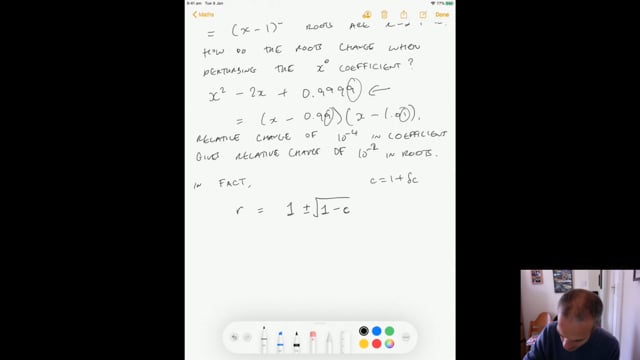 9:41 am Tue 9 Jan
77%
Maths
Done
= (x − 1)² ROOTS ARE
HOW DO THE ROOTS CHANGE WHEN
PERTURBING THE x⁰ COEFFICIENT?
x² − 2x + 0.9999 ←
= (x − 0.99)(x − 1.01).
RELATIVE CHANGE OF 10⁻⁴ IN COEFFICIENT
GIVES RELATIVE CHANGE OF 10⁻² IN ROOTS.
IN FACT, c = 1 + δc
r = 1 ± √1 − c